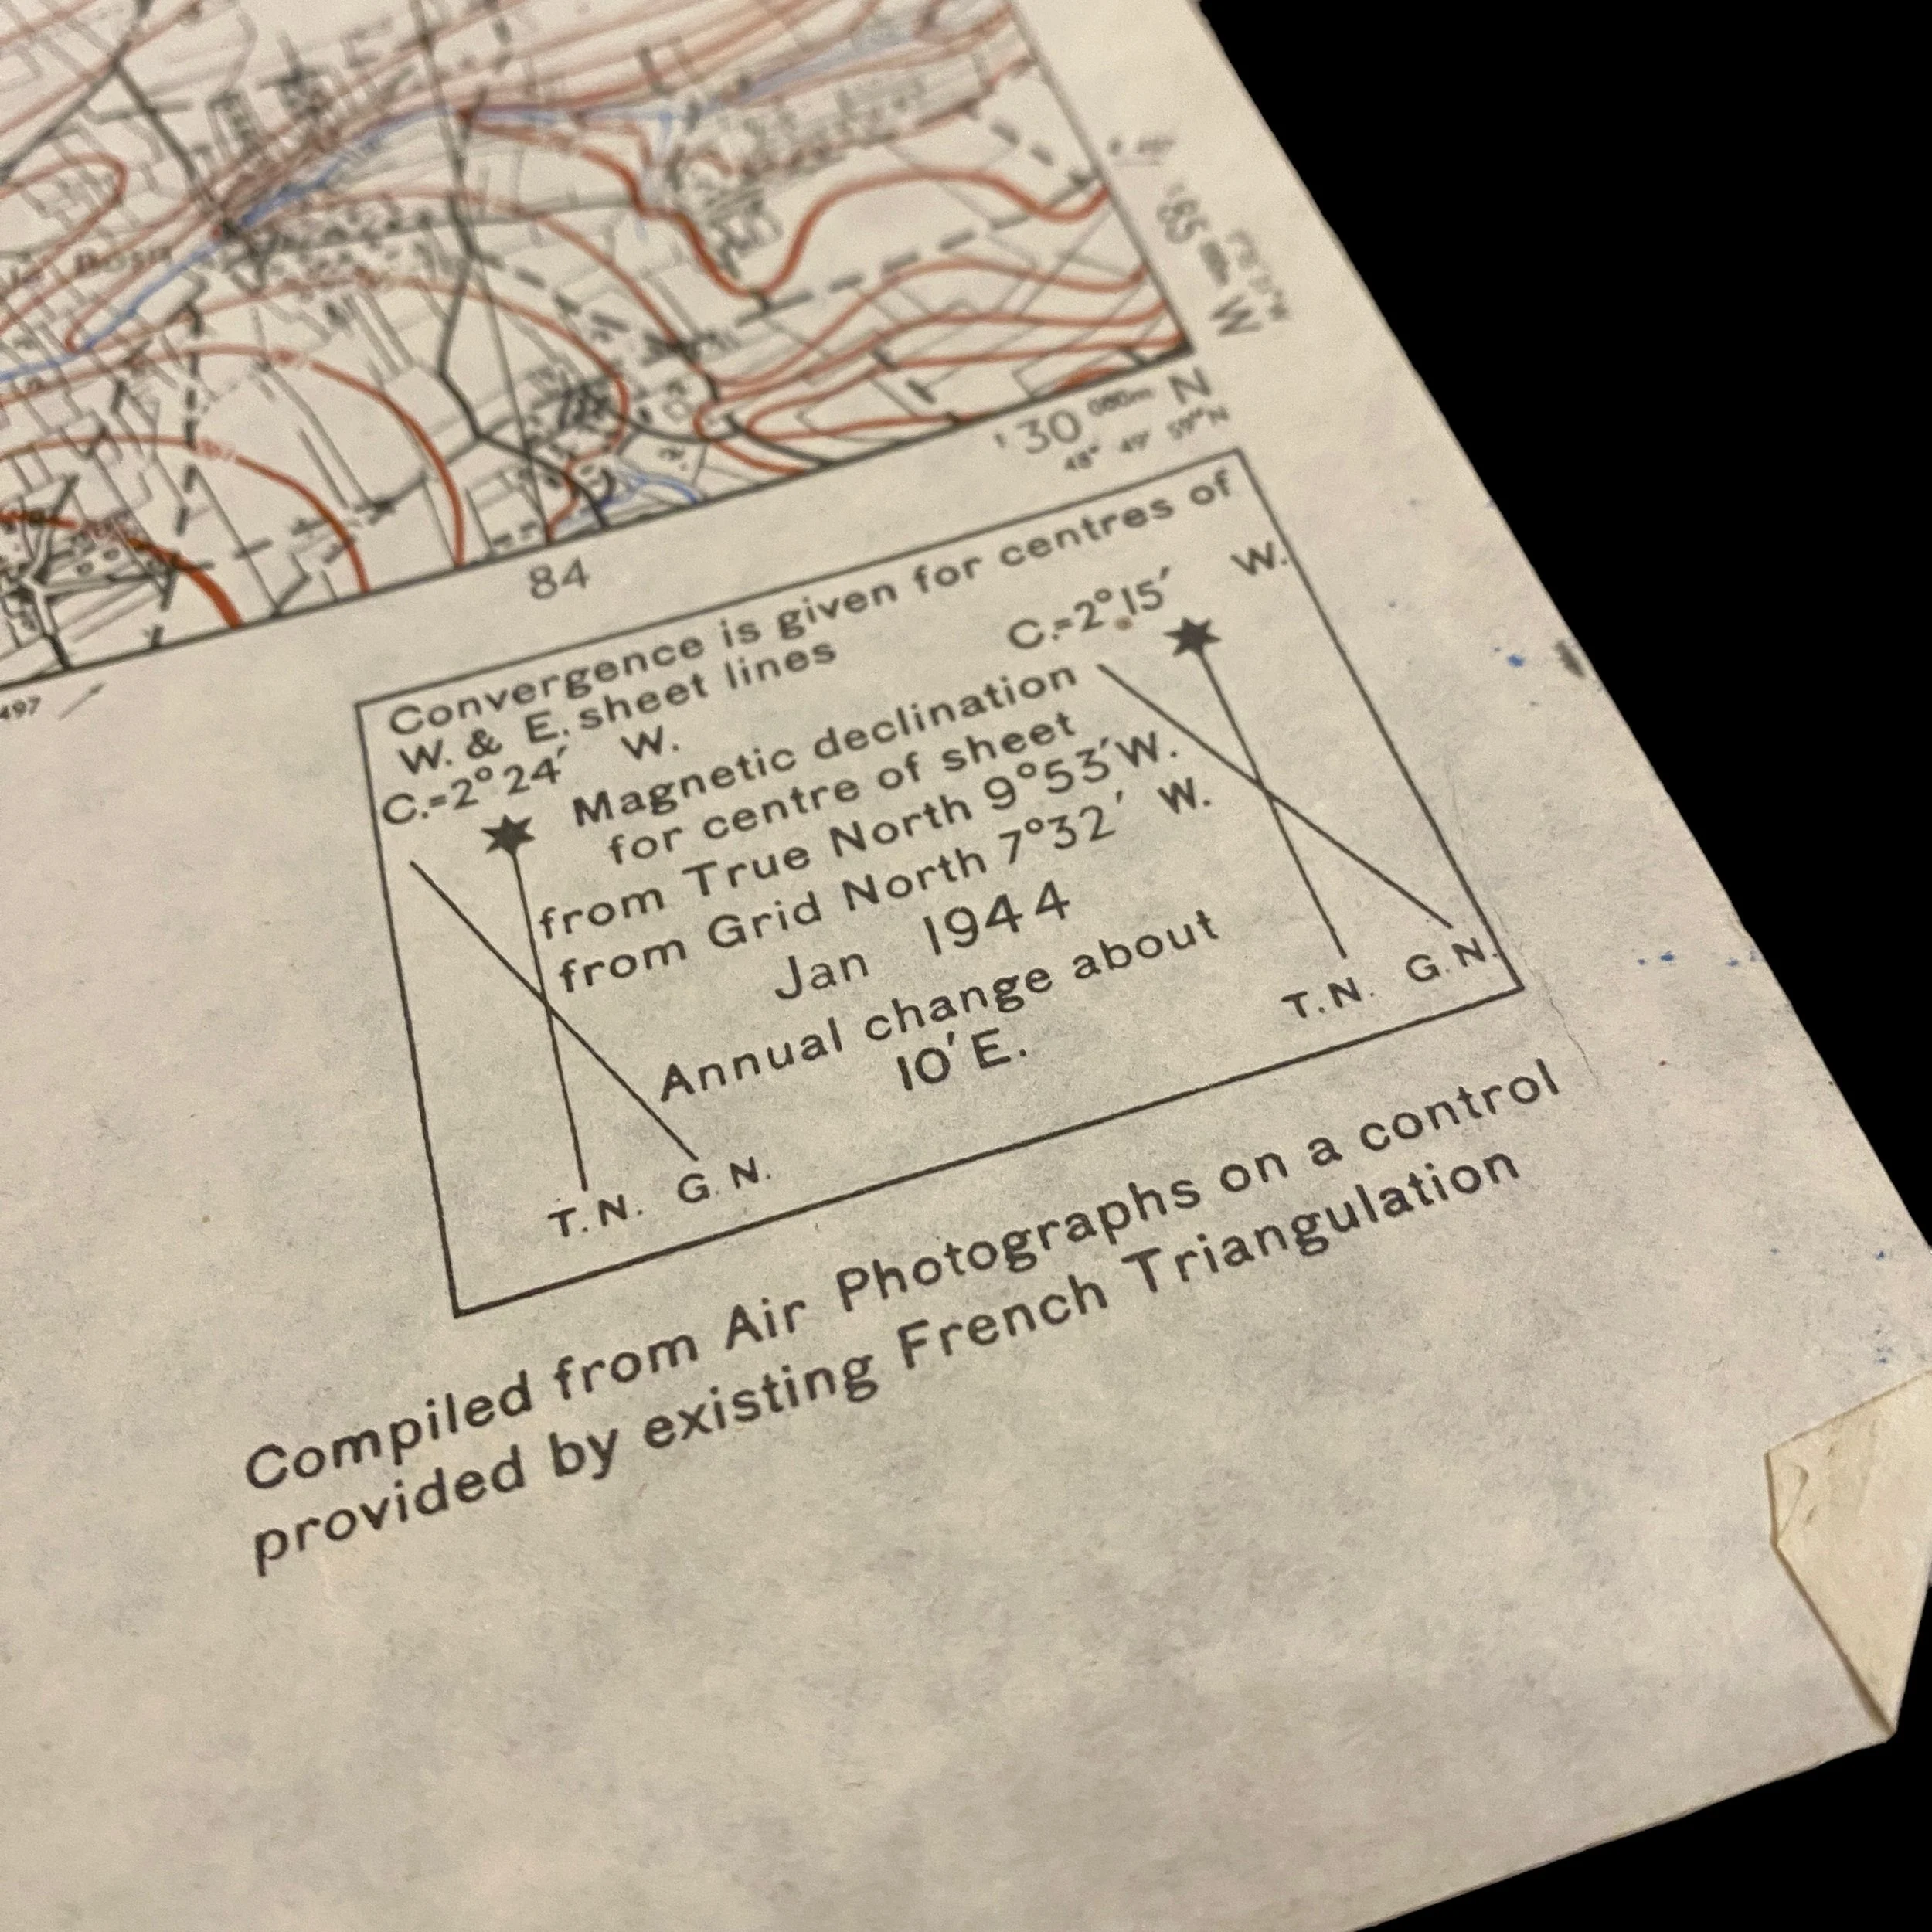 '85
W
'30 000m N
48° 49' 59" N
84
497
Convergence is given for centres of
W. & E. sheet lines
C.=2° 15′ W.
C.=2° 24′ W.
Magnetic declination
for centre of sheet
from True North 9°53′W.
from Grid North 7°32′ W.
Jan 1944
Annual change about
10′E.
T.N. G.N.
T.N. G.N.
Compiled from Air Photographs on a control
provided by existing French Triangulation